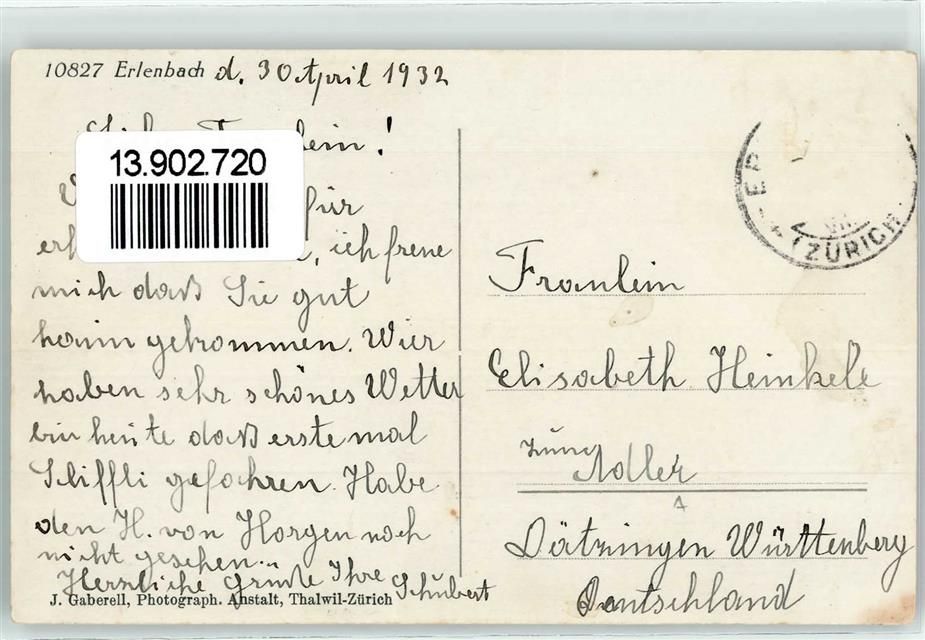 10827 Erlenbach d. 30 April 1932
13.902.720
für
ich freue
mich daß Sie gut
heim gekommen. Wier
haben sehr schönes Wetter
bin heute daß erste mal
Schiffli gefahren. Habe
den H. von Horgen noch
nicht gesehen..
Herzliche Grüße Ihre Schubert
J. Gaberell, Photograph. Anstalt, Thalwil-Zürich
(ZÜRICH)
Fraulein
Elisabeth Heinkele
zum Adler
Dätzningen Württenberg
Deutschland